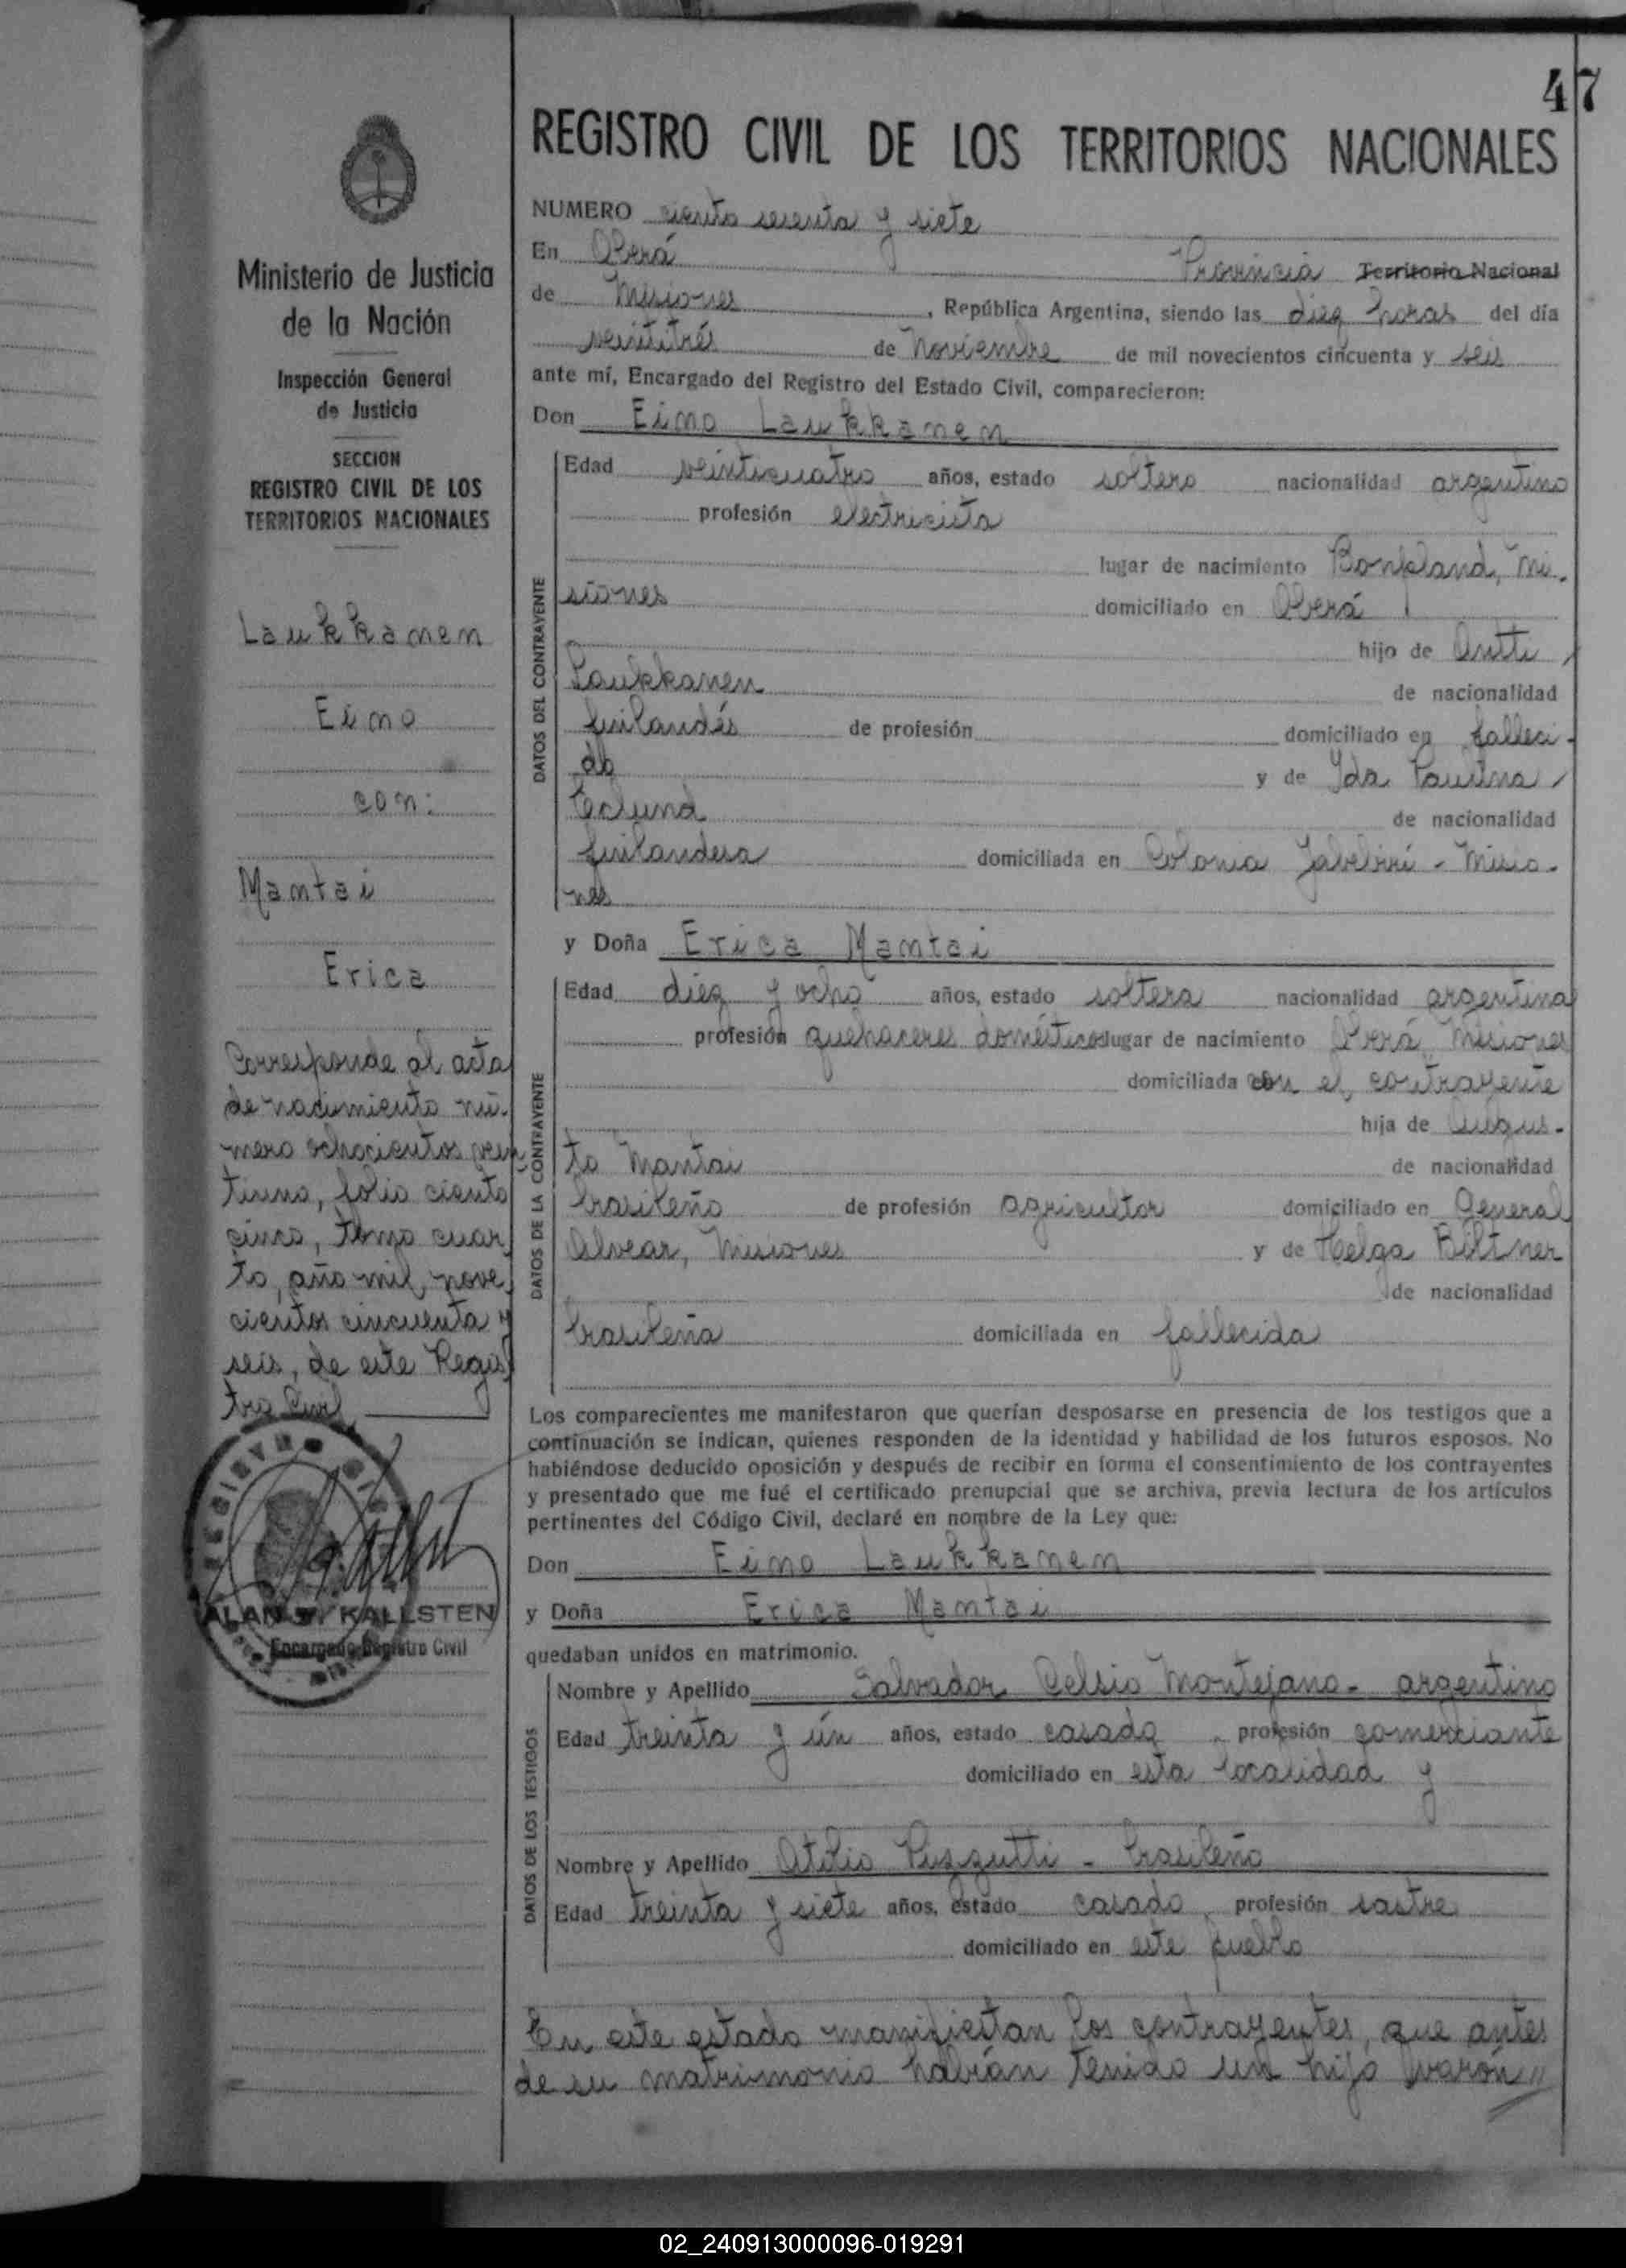 47
REGISTRO CIVIL DE LOS TERRITORIOS NACIONALES
NUMERO ciento sesenta y siete
En Oberá Provincia Territorio Nacional
de Misiones, República Argentina, siendo las diez horas del día
veintitrés de Noviembre de mil novecientos cincuenta y seis
ante mí, Encargado del Registro del Estado Civil, comparecieron:
Don Eino Laukkanen
DATOS DEL CONTRAYENTE
Edad veinticuatro años, estado soltero nacionalidad argentino
profesión electricista
lugar de nacimiento Bonpland, Mi-
siones domiciliado en Oberá
hijo de Antti
Laukkanen de nacionalidad
finlandés de profesión domiciliado en falleci-
do y de Yda Paulina
Eclund de nacionalidad
finlandesa domiciliada en Colonia Yabebirí - Misio-
nes
y Doña Erica Mantai
DATOS DE LA CONTRAYENTE
Edad diez y ocho años, estado soltera nacionalidad argentina
profesión quehaceres domésticos lugar de nacimiento Oberá, Misiones
domiciliada con el contrayente
hija de Augus-
to Mantai de nacionalidad
brasileño de profesión agricultor domiciliado en General
Alvear, Misiones y de Helga Biltner
de nacionalidad
brasileña domiciliada en fallecida
Los comparecientes me manifestaron que querían desposarse en presencia de los testigos que a
continuación se indican, quienes responden de la identidad y habilidad de los futuros esposos. No
habiéndose deducido oposición y después de recibir en forma el consentimiento de los contrayentes
y presentado que me fué el certificado prenupcial que se archiva, previa lectura de los artículos
pertinentes del Código Civil, declaré en nombre de la Ley que:
Don Eino Laukkanen
y Doña Erica Mantai
quedaban unidos en matrimonio.
DATOS DE LOS TESTIGOS
Nombre y Apellido Salvador Celsio Montejano - argentino
Edad treinta y ún años, estado casado profesión comerciante
domiciliado en esta localidad y
Nombre y Apellido Atilio Puzzutti - brasileño
Edad treinta y siete años, estado casado profesión sastre
domiciliado en este pueblo
En este estado manifiestan los contrayentes, que antes
de su matrimonio habían tenido un hijo varón//
Ministerio de Justicia
de la Nación
Inspección General
de Justicia
SECCION
REGISTRO CIVIL DE LOS
TERRITORIOS NACIONALES
Laukkanen
Eino
con:
Mantai
Erica
Corresponde al acta
de nacimiento nú-
mero ochocientos vein
tiuno, folio ciento
cinco, tomo cuar
to, año mil nove
cientos cincuenta y
seis, de este Regis
tro Civil
ALAN KALLSTEN
Encargado Registro Civil
02_240913000096-019291